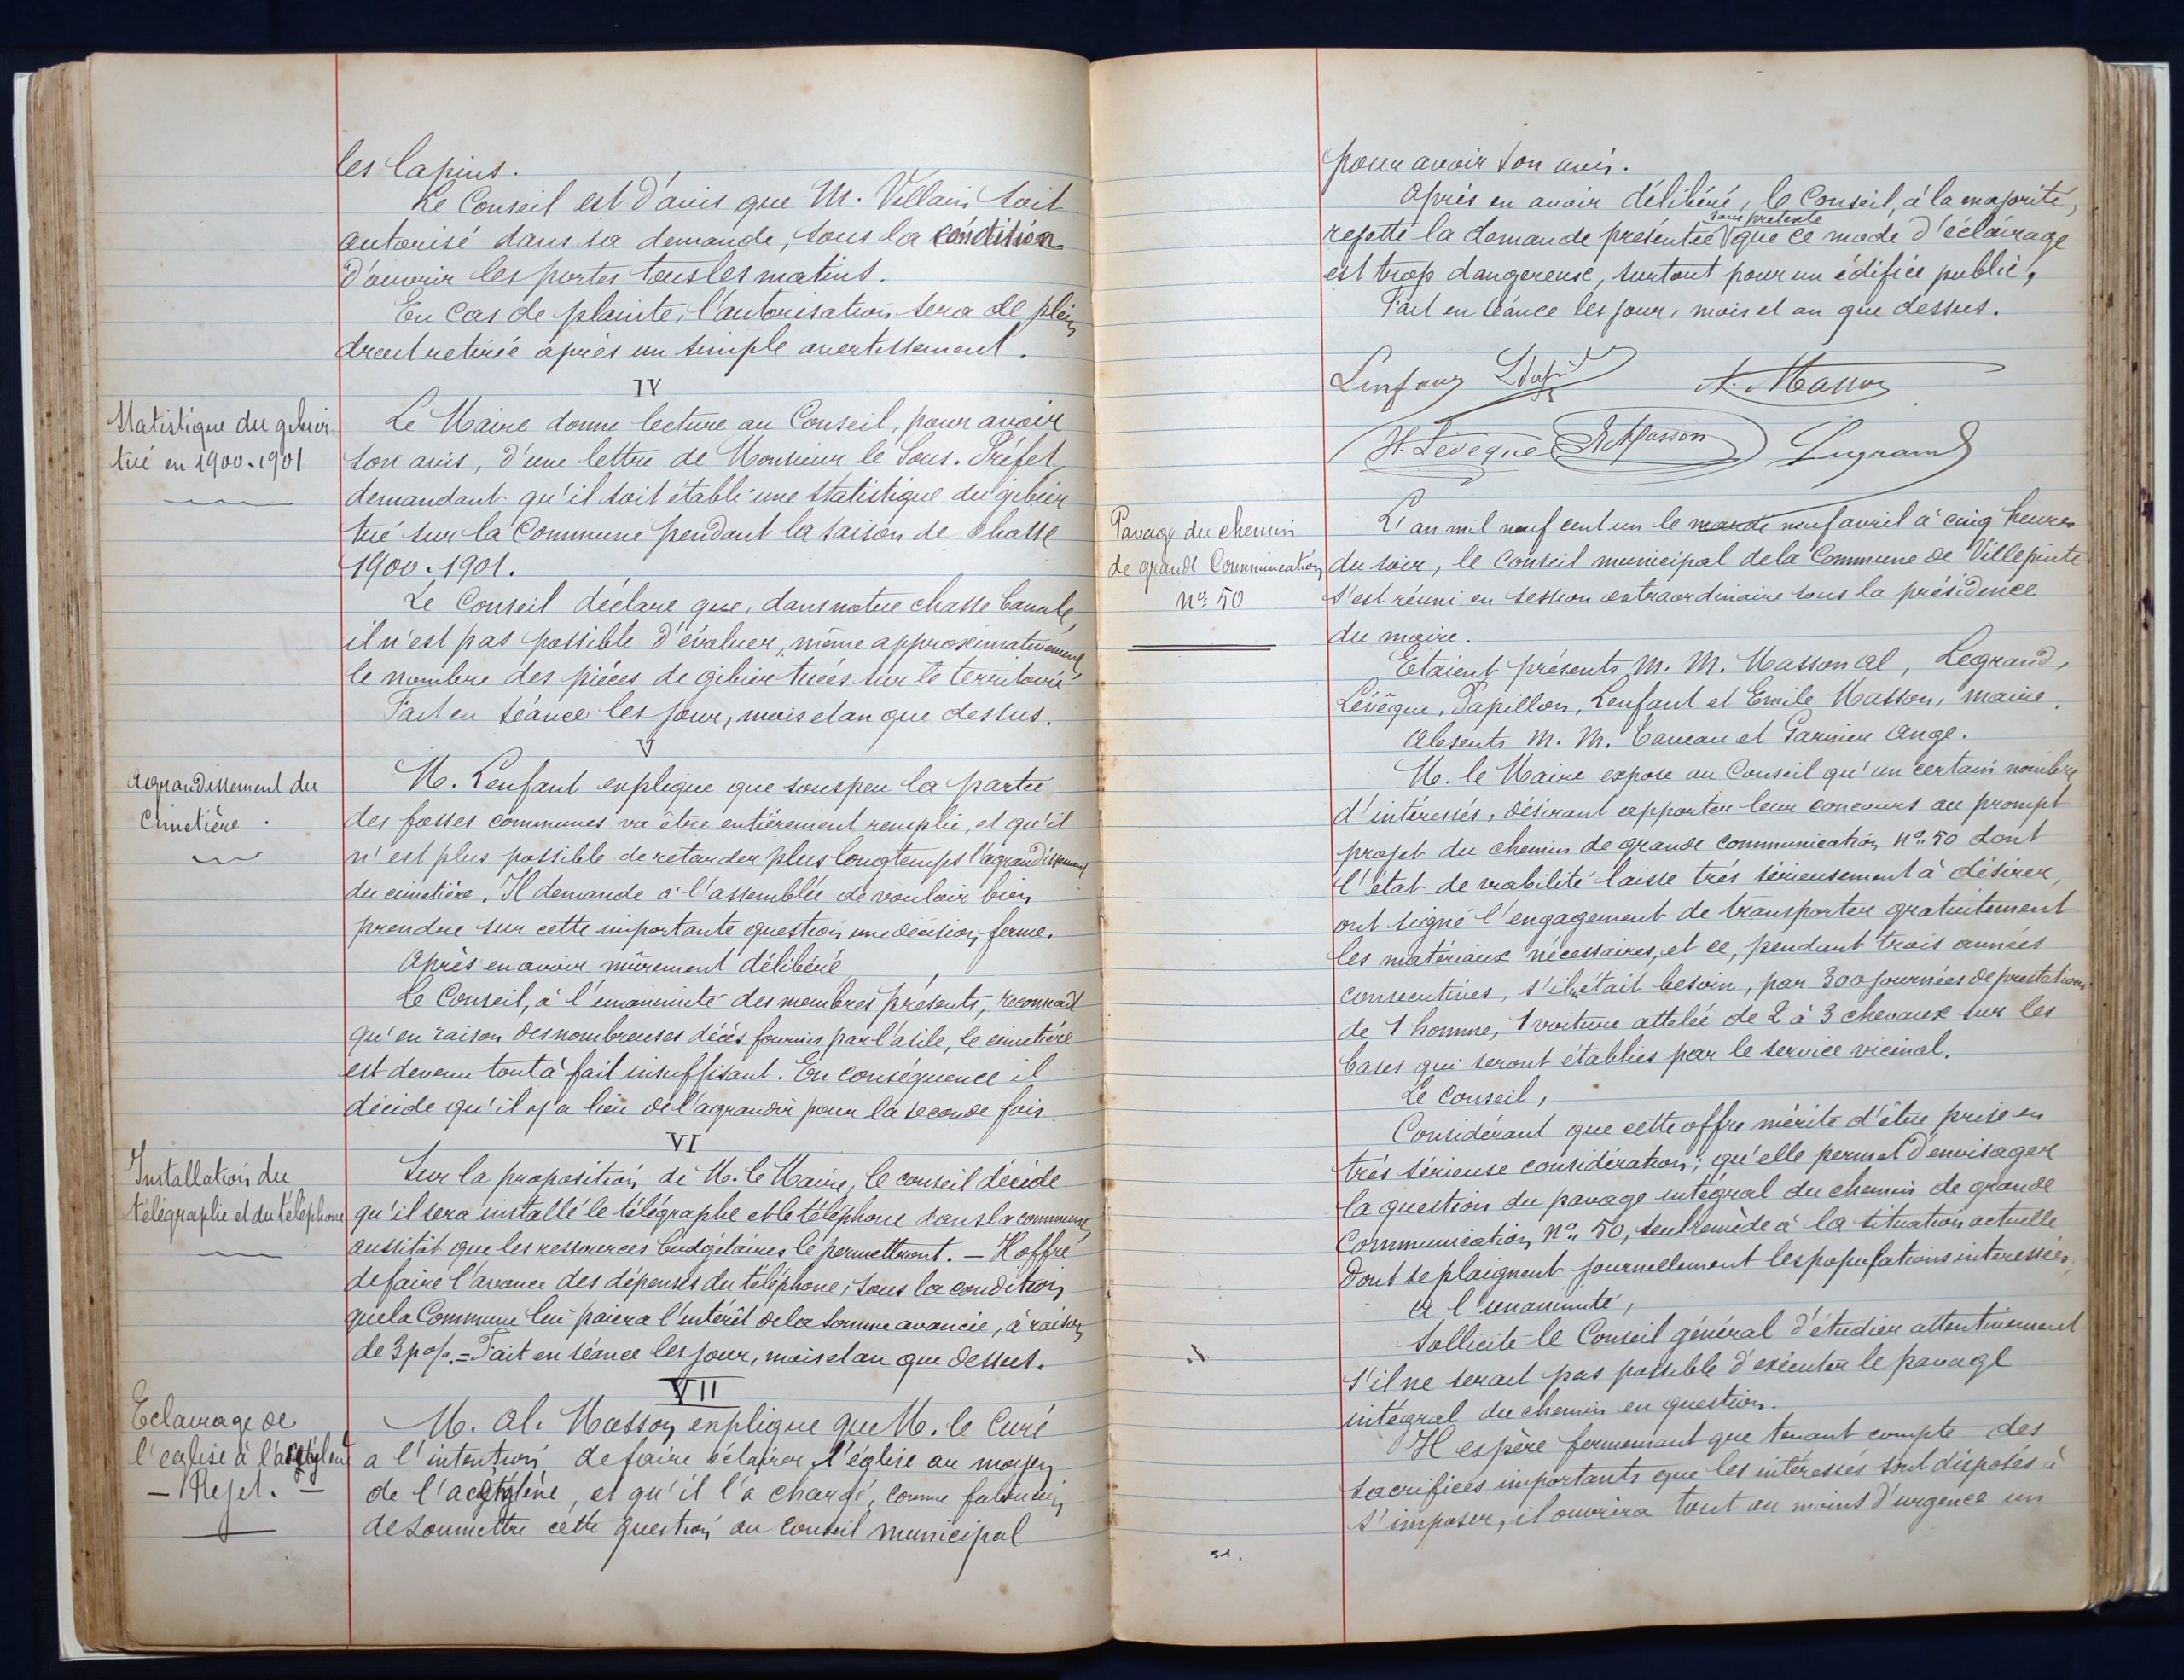 les lapins.
Le Conseil est d'avis que M. Villain soit
autorisé dans sa demande, sous la condition
d'ouvrir les portes tous les matins.
En cas de plainte, l'autorisation sera de plein
droit retirée après un simple avertissement.
IV
Statistique du gibier
tué en 1900-1901
Le Maire donne lecture au Conseil, pour avoir
son avis, d'une lettre de Monsieur le Sous-Préfet
demandant qu'il soit établi une statistique du gibier
tué sur la Commune pendant la saison de chasse
1900-1901.
Le Conseil déclare que, dans notre chasse banale,
il n'est pas possible d'évaluer, même approximativement
le nombre des pièces de gibier tuées sur le territoire
Fait en séance les jour, mois et an que dessus.
V
Agrandissement du
Cimetière.
M. Lenfant explique que sous peu la partie
des fosses communes va être entièrement remplie, et qu'il
n'est plus possible de retarder plus longtemps l'agrandissement
du cimetière. Il demande à l'assemblée de vouloir bien
prendre sur cette importante question une décision ferme.
Après en avoir mûrement délibéré
Le Conseil, à l'unanimité des membres présents, reconnait
qu'en raison des nombreuses décès fournis par l'asile, le cimetière
est devenu tout à fait insuffisant. En conséquence il
décide qu'il y a lieu de l'agrandir pour la seconde fois.
VI
Installation du
télégraphe et du téléphone
Sur la proposition de M. le Maire, le conseil décide
qu'il sera installé le télégraphe et le téléphone dans la commune,
aussitôt que les ressources budgétaires le permettront. — H offre
de faire l'avance des dépenses du téléphone, sous la condition
que la Commune lui paiera l'intérêt de la somme avancée, à raison
de 3 p%. = Fait en séance les jour, mois et an que dessus.
VII
Eclairage de
l'église à l'acétylène
— Rejet. —
M. Al. Masson explique que M. le Curé
a l'intention de faire éclairer l'église au moyen
de l'acétylène, et qu'il l'a chargé, comme fabricien,
de soumettre cette question au Conseil municipal
pour avoir son avis.
Après en avoir délibéré, le Conseil, à la majorité,
sous prétexte
rejette la demande présentée que ce mode d'éclairage
est trop dangereuse, surtout pour un édifice public,
Fait en séance les jour, mois et an que dessus.
Lenfant A. Masson
H. Lévêque Masson Legrand
Pavage du chemin
de grande Communication
Nº 50
L'an mil neuf cent un le mardi neuf avril à cinq heures
du soir, le Conseil municipal de la Commune de Villepinte
s'est réuni en session extraordinaire sous la présidence
du maire.
Étaient présents M. M. Masson Al, Legrand,
Lévêque, Papillon, Lenfant et Emile Masson, maire.
Absents M. M. Caveau et Garnier Ange.
M. le Maire expose au Conseil qu'un certain nombre
d'intéressés, désirant apporter leur concours au prompt
projet du chemin de grande communication Nº 50 dont
l'état de viabilité laisse très sérieusement à désirer,
ont signé l'engagement de transporter gratuitement
les matériaux nécessaires, et ce, pendant trois années
consecutives, s'il en était besoin, par 300 journées de prestations
de 1 homme, 1 voiture attelée de 2 à 3 chevaux sur les
bases qui seront établies par le service vicinal.
Le Conseil,
Considérant que cette offre mérite d'être prise en
très sérieuse considération; qu'elle permet d'envisager
la question du pavage intégral du chemin de grande
Communication Nº 50, seul remède à la situation actuelle
dont se plaignent journellement les populations interessées.
A l'unanimité,
Sollicite le Conseil général d'étudier attentivement
s'il ne serait pas possible d'exécuter le pavage
intégral du chemin en question.
Il espère fermemant que tenant compte des
sacrifices importants que les intéressés sont disposés à
s'imposer, il ouvrira tout au moins d'urgence un